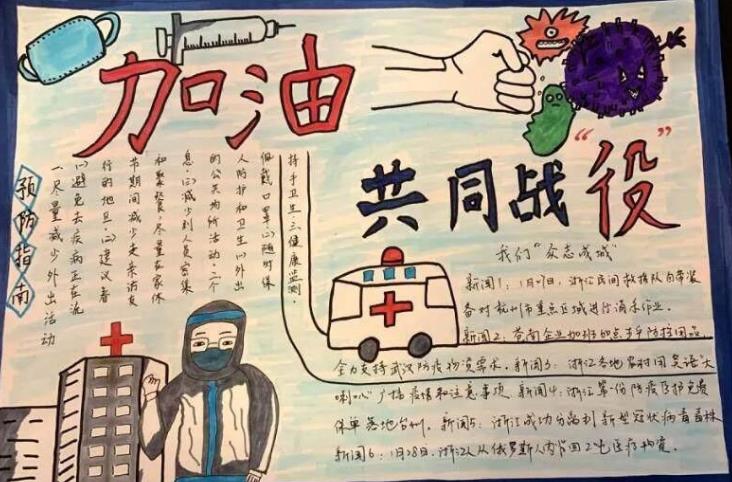 加油
共同战“役”
预防指南
一、尽量减少外出活动
(1)避免去疾病正在流
行的地区。(2)建议春
节期间减少走亲访友
和聚餐，尽量在家休
息。(3)减少到人员密集
的公共场所活动。二、个
人防护和卫生(1)外出
佩戴口罩(2)随时保
持手卫生三、健康监测。
我们“众志成城”
新闻1：1月27日，浙江民间救援队自带装
备对杭州市重点区域进行消杀作业。
新闻2：苍南企业加班加点生产防护用品，
全力支持武汉防疫物资需求。新闻3：浙江各地农村用吴语“大
喇叭”广播疫情和注意事项。新闻4：浙江首份防疫医护免费
保单落地台州。新闻5：浙江成功分离到新型冠状病毒毒株
新闻6：1月28日，浙江人从俄罗斯人肉背回2吨医疗物资。